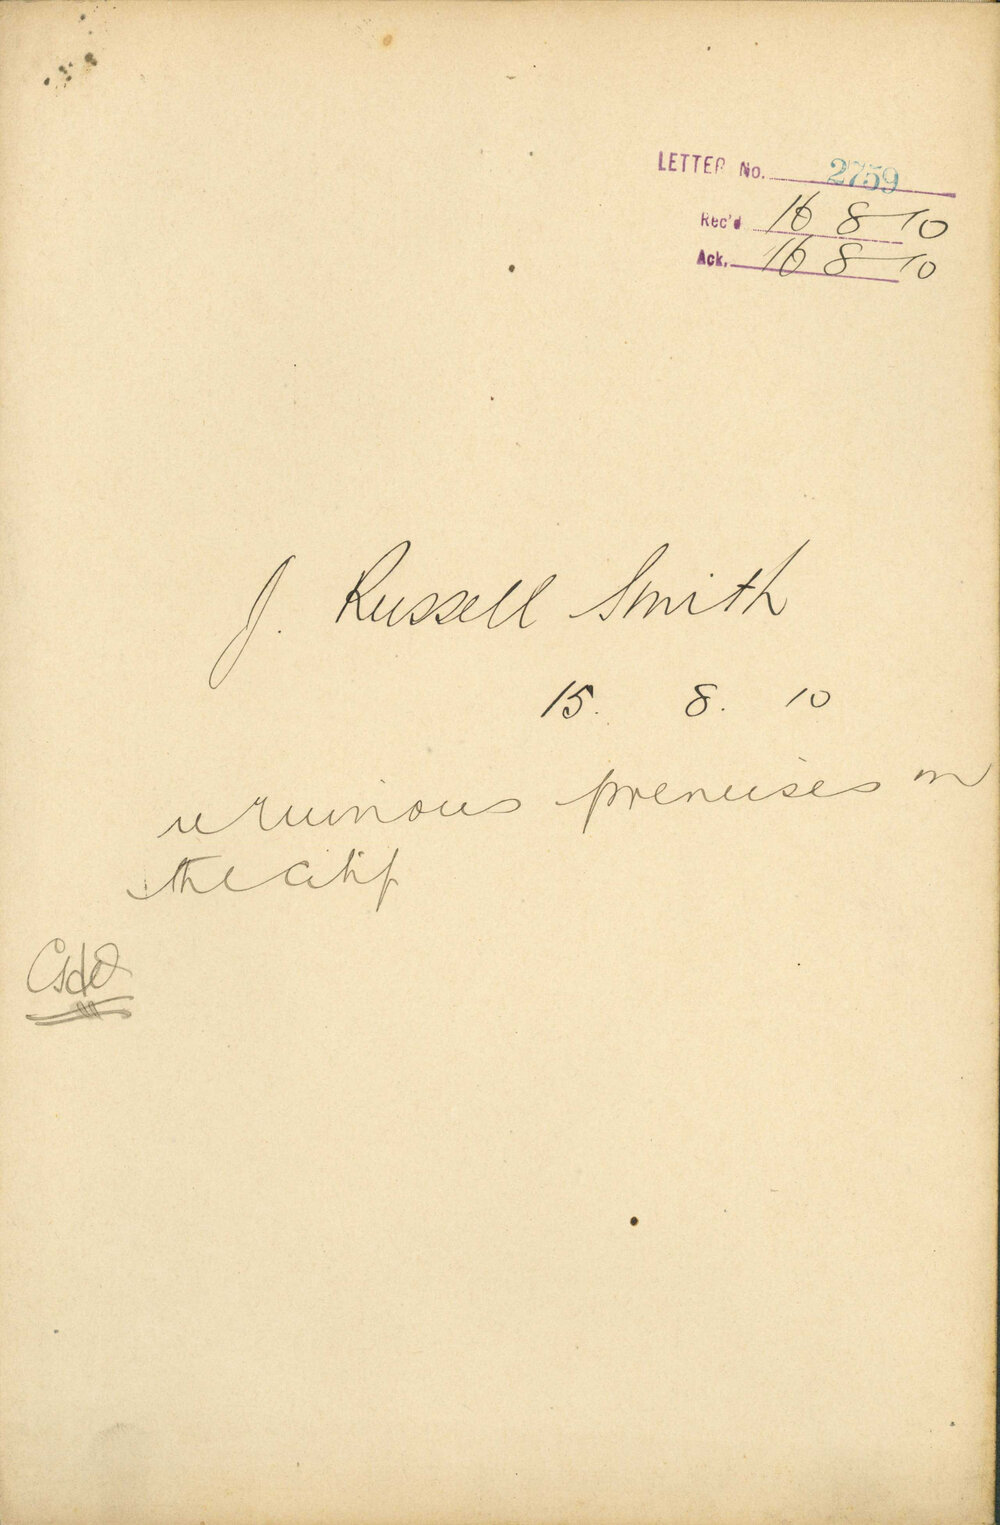 LETTER No. 2759
Rec'd 16 8 10
Ack. 16 8 10
J. Russell Smith
15. 8. 10
ruinous premises in
the city